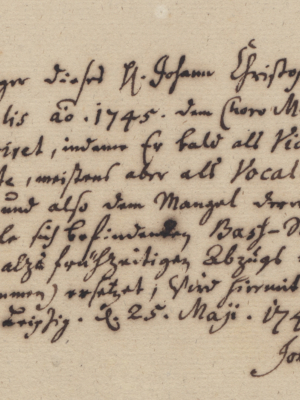 ger dieses H. Johann Christop
lis ao. 1745. dem Choro M
iret, indeme Er bald als Vio
te, meistens aber als Vocal
und also dem Mangel derer
le sich befindenden Bass-S
alzu frühzeitigen Abzugs
mmen) ersetzet; Wird hiermit
Leipzig. d. 25. Maji. 174
Joh